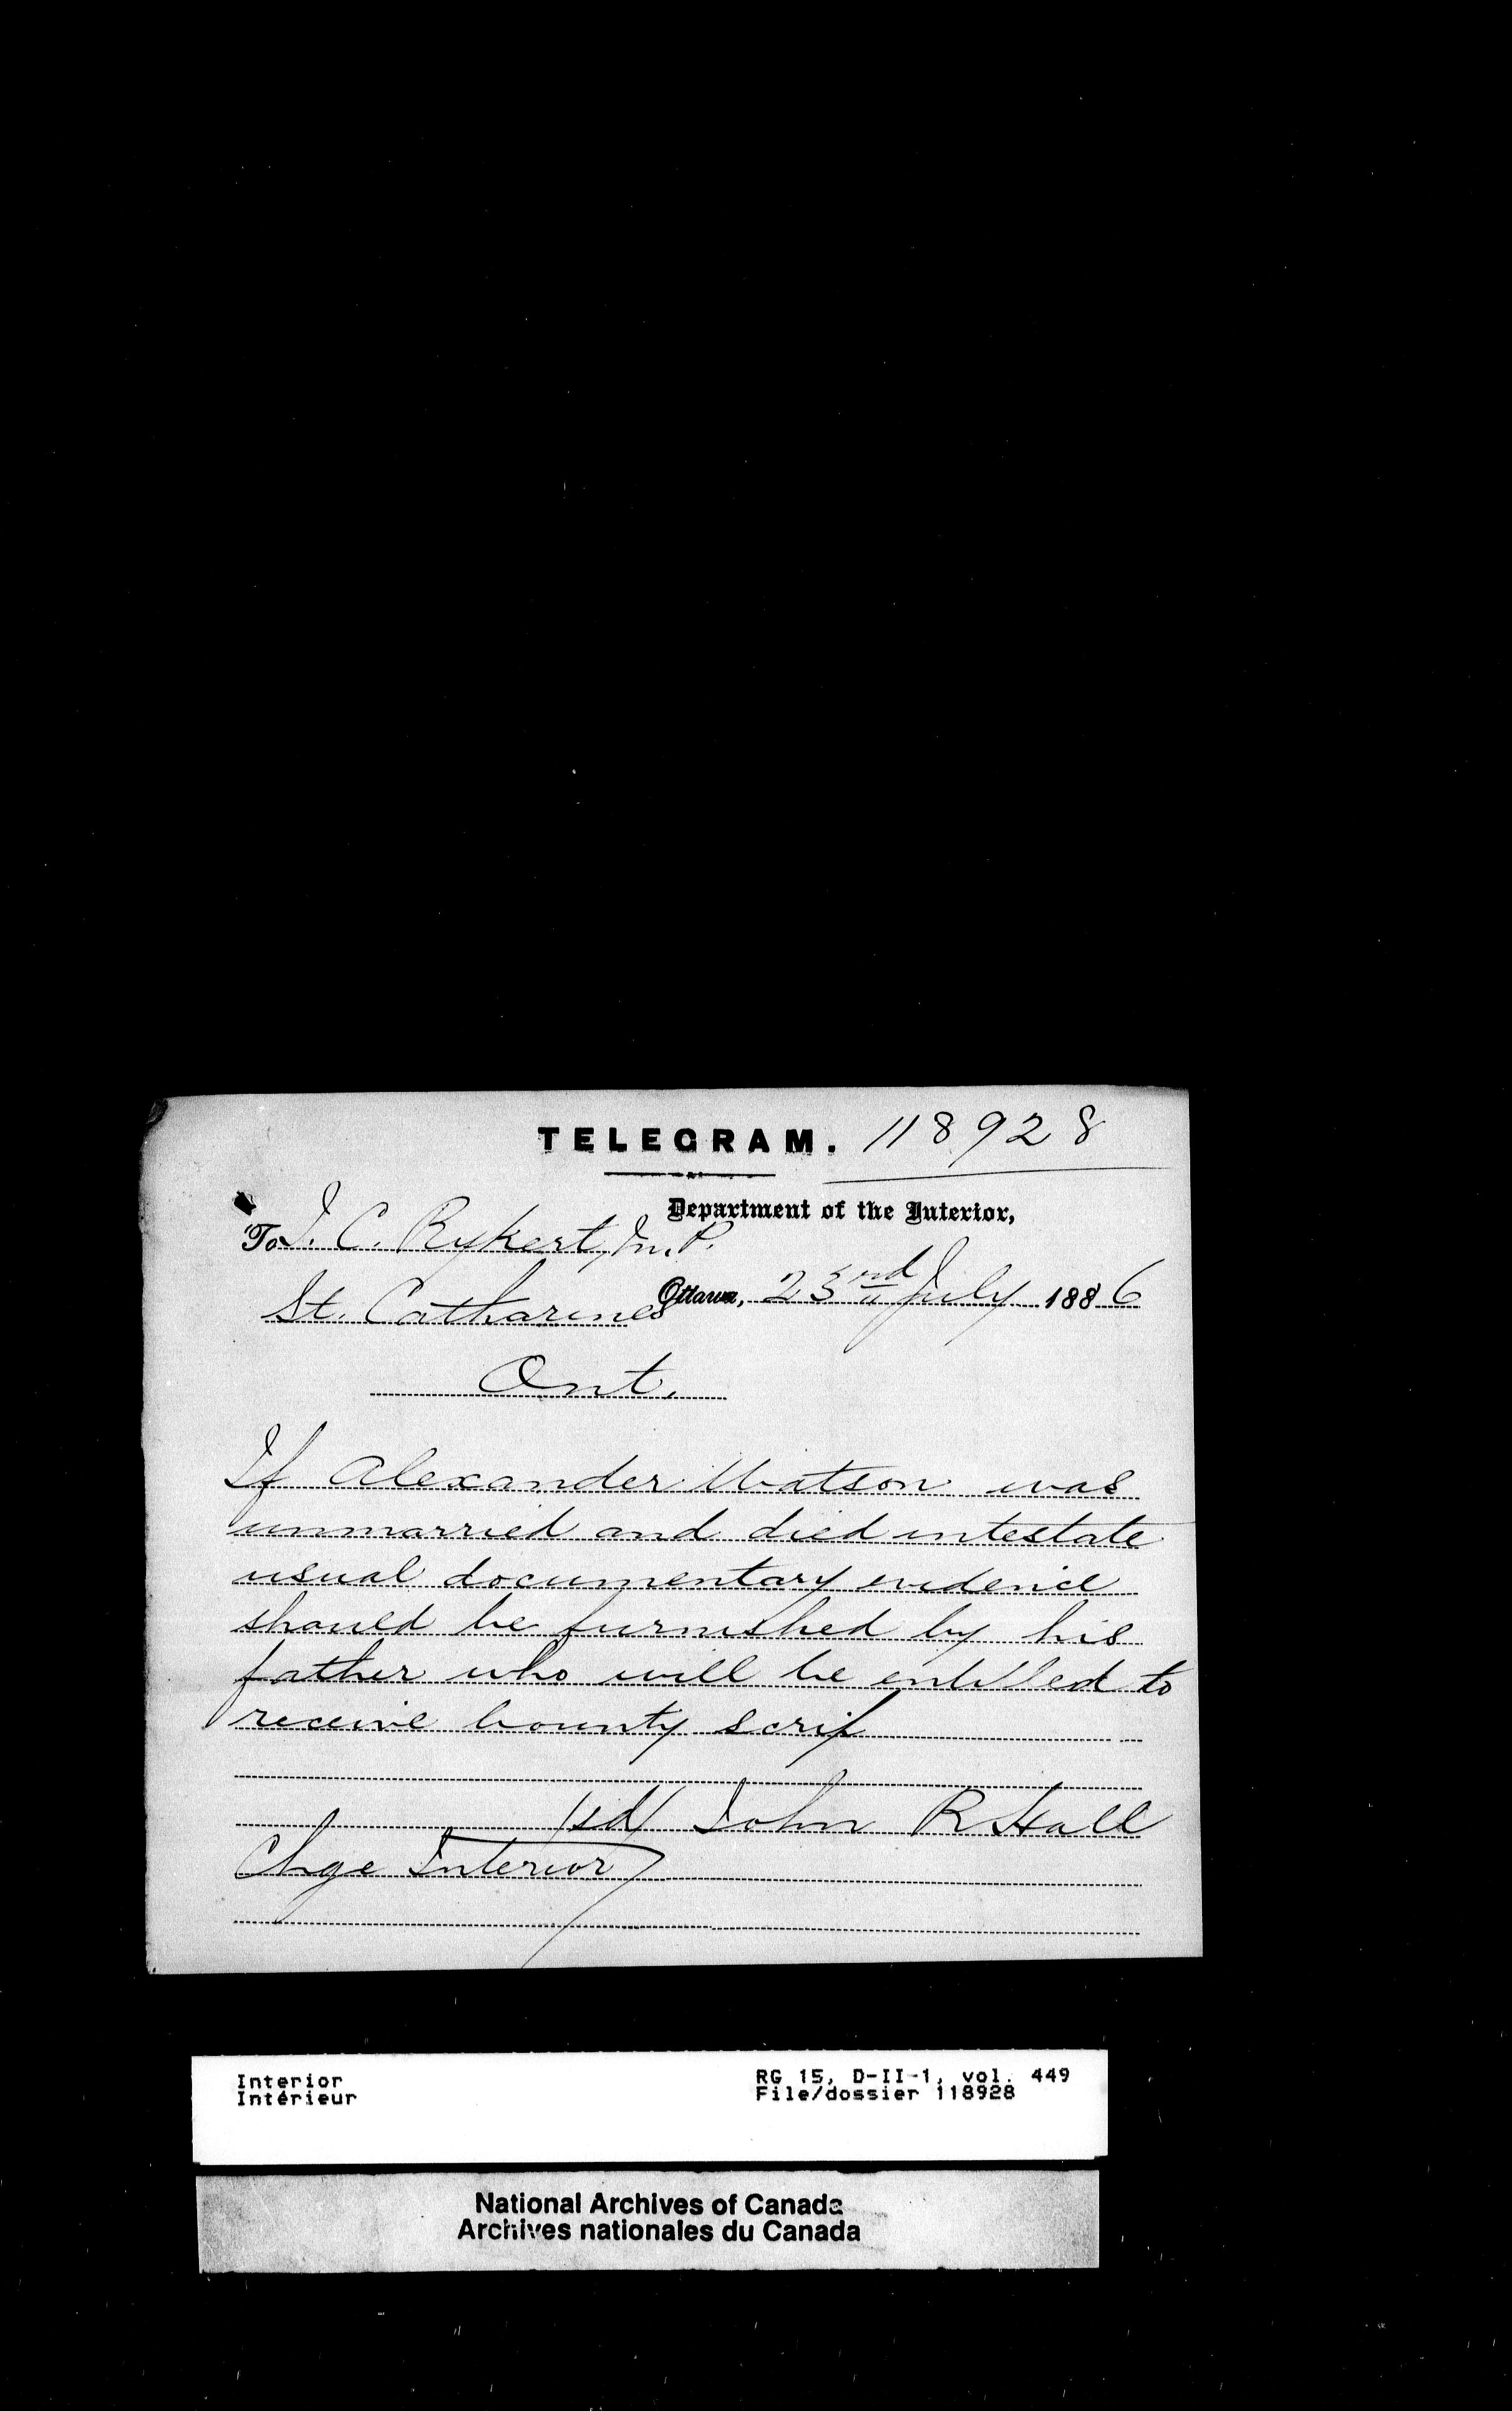 TELEGRAM. 118928
Department of the Interior,
To J. C. Rykert, M. P.
Ottawa, 23rd July 1886
St. Catharines
Ont.
If Alexander Watson was
unmarried and died intestate
usual documentary evidence
should be furnished by his
father who will be entitled to
receive bounty scrip
(sd) John R Hall
Chge Interior
Interior
Intérieur
RG 15, D-II-1, vol. 449
File/dossier 118928
National Archives of Canada
Archives nationales du Canada